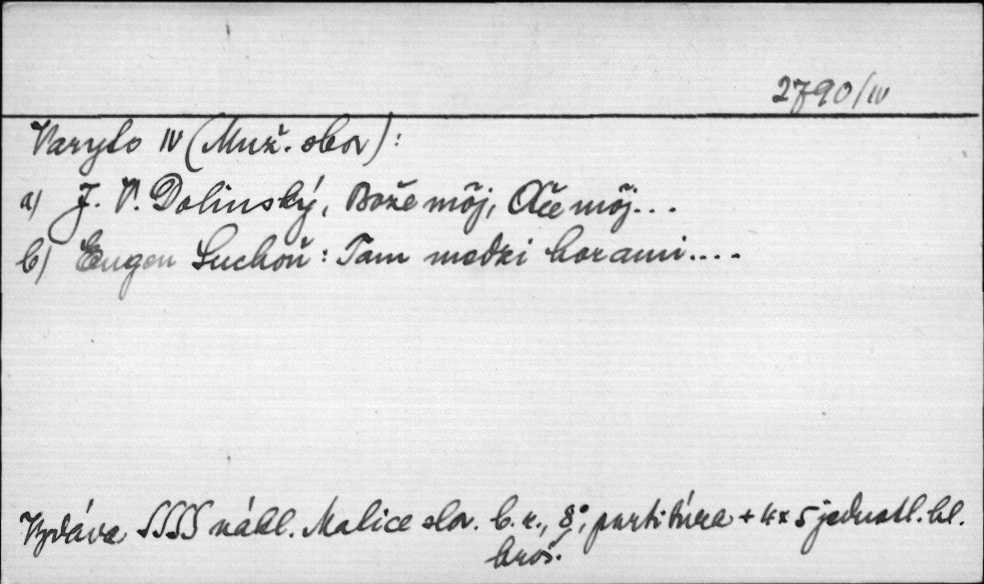 2790/IV
Varyto IV (Muž. sbor):
a) J. V. Dolinský, Bože môj, Otče môj...
b) Eugen Suchoň: Tam medzi horami....
Vydáva SSSS nákl. Matice slov. b. r., 8°, partitúra + 4 x 5 jednotl. hl.
broš.